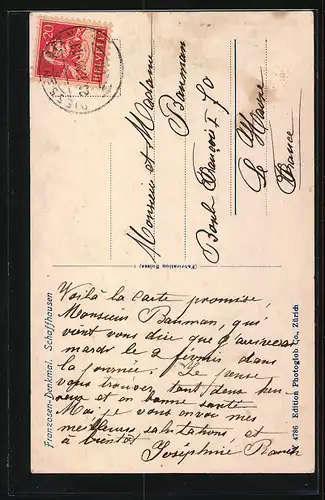 20
HELVETIA
Monsieur et Madame
Bauman
Boul. François I 70
Le Havre
France
(Fabrication Suisse)
Franzosen-Denkmal. Schaffhausen
4786 Edition Photoglob Co., Zürich
Voilà la carte promise,
Monsieur Bauman, qui
vient vous dire que j'arriverai
mardi le 2 février dans
la journée. Je pense
vous trouver tout deux heu-
reux et en bonne santé
Moi, je vous envoie mes
meilleures salutations, et
à bientôt Joséphine